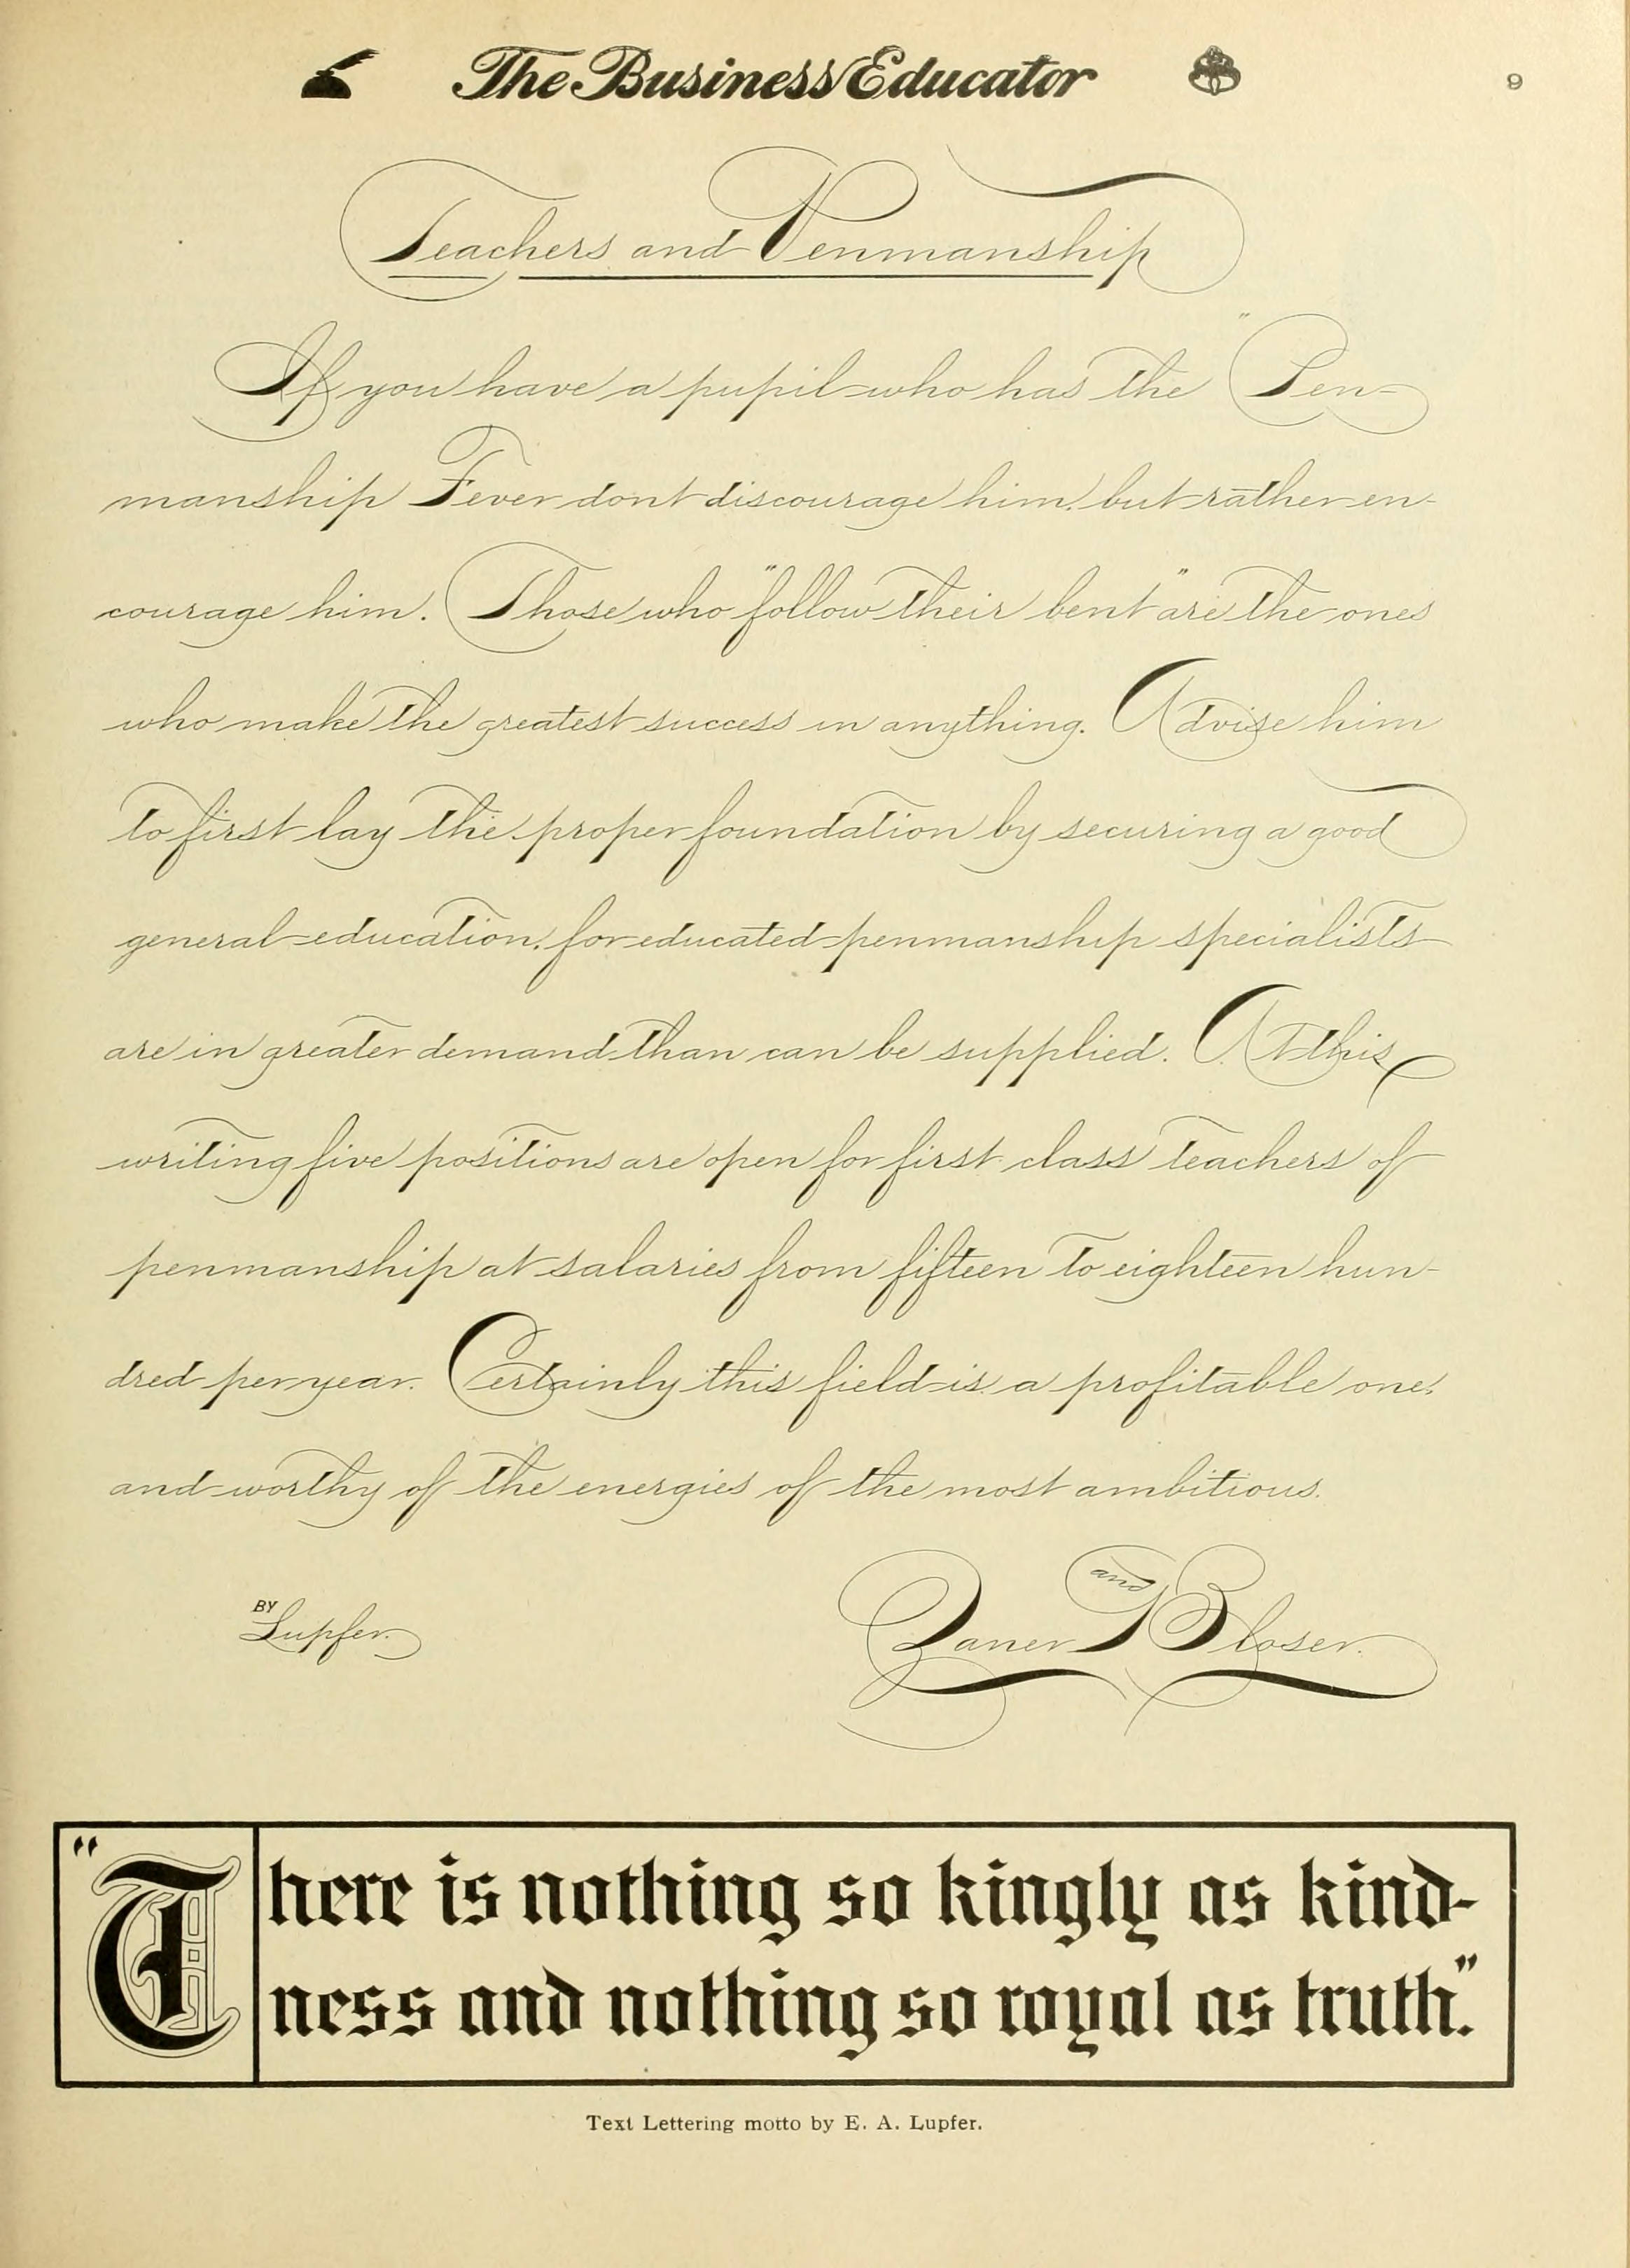 The Business Educator
9
Teachers and Penmanship
If you have a pupil who has the "Pen-
manship Fever dont discourage him, but rather en-
courage him. Those who "follow their bent" are the ones
who make the greatest success in anything. Advise him
to first lay the proper foundation by securing a good
general education, for educated penmanship specialists
are in greater demand than can be supplied. At this
writing five positions are open for first class teachers of
penmanship at salaries from fifteen to eighteen hun-
dred per year. Certainly this field is a profitable one,
and worthy of the energies of the most ambitious.
BY
Lupfer.
Zaner and Bloser.
"There is nothing so kingly as kind-
ness and nothing so royal as truth."
Text Lettering motto by E. A. Lupfer.